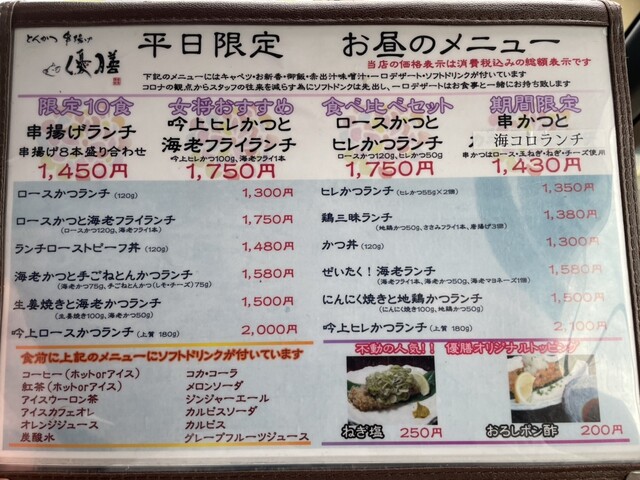 とんかつ 串揚げ
優膳
平日限定 お昼のメニュー
当店の価格表示は消費税込みの総額表示です
下記のメニューにはキャベツ・お新香・御飯・赤出汁味噌汁・一口デザート・ソフトドリンクが付いています
コロナの観点からスタッフの往来を減らす為にソフトドンクは先出し、一口デザートはお食事と一緒にお持ち致します
限定10食
串揚げランチ
串揚げ8本盛り合わせ
1,450円
女将おすすめ
吟上ヒレかつと
海老フライランチ
吟上ヒレかつ100g、海老フライ1本
1,750円
食べ比べセット
ロースかつと
ヒレかつランチ
ロースかつ120g、ヒレかつ50g
1,750円
期間限定
串かつと
海コロランチ
串かつはロース・玉ねぎ・ねぎ・チーズ使用
1,430円
ロースかつランチ (120g) 1,300円
ロースかつと海老フライランチ 1,750円
(ロースかつ120g、海老フライ1本)
ランチローストビーフ丼 (120g) 1,480円
海老かつと手ごねとんかつランチ 1,580円
(海老かつ75g、手ごねとんかつ(しそ・チーズ)75g)
生姜焼きと海老かつランチ 1,500円
(生姜焼き100g、海老かつ50g)
吟上ロースかつランチ (上質 180g) 2,000円
ヒレかつランチ (ヒレかつ55g×2個) 1,350円
鶏三昧ランチ 1,380円
(地鶏かつ50g、ささみフライ1本、唐揚げ3個)
かつ丼 (120g) 1,300円
ぜいたく!海老ランチ 1,580円
(海老フライ1本、海老かつ50g、海老マヨネーズ1個)
にんにく焼きと地鶏かつランチ 1,500円
(にんにく焼き100g、地鶏かつ50g)
吟上ヒレかつランチ (上質 180g) 2,100円
食前に上記のメニューにソフトドリンクが付いています
コーヒー(ホットorアイス)
紅茶(ホットorアイス)
アイスウーロン茶
アイスカフェオレ
オレンジジュース
炭酸水
コカ・コーラ
メロンソーダ
ジンジャーエール
カルピスソーダ
カルピス
グレープフルーツジュース
不動の人気!! 優膳オリジナルトッピング
ねぎ塩 250円
おろしポン酢 200円